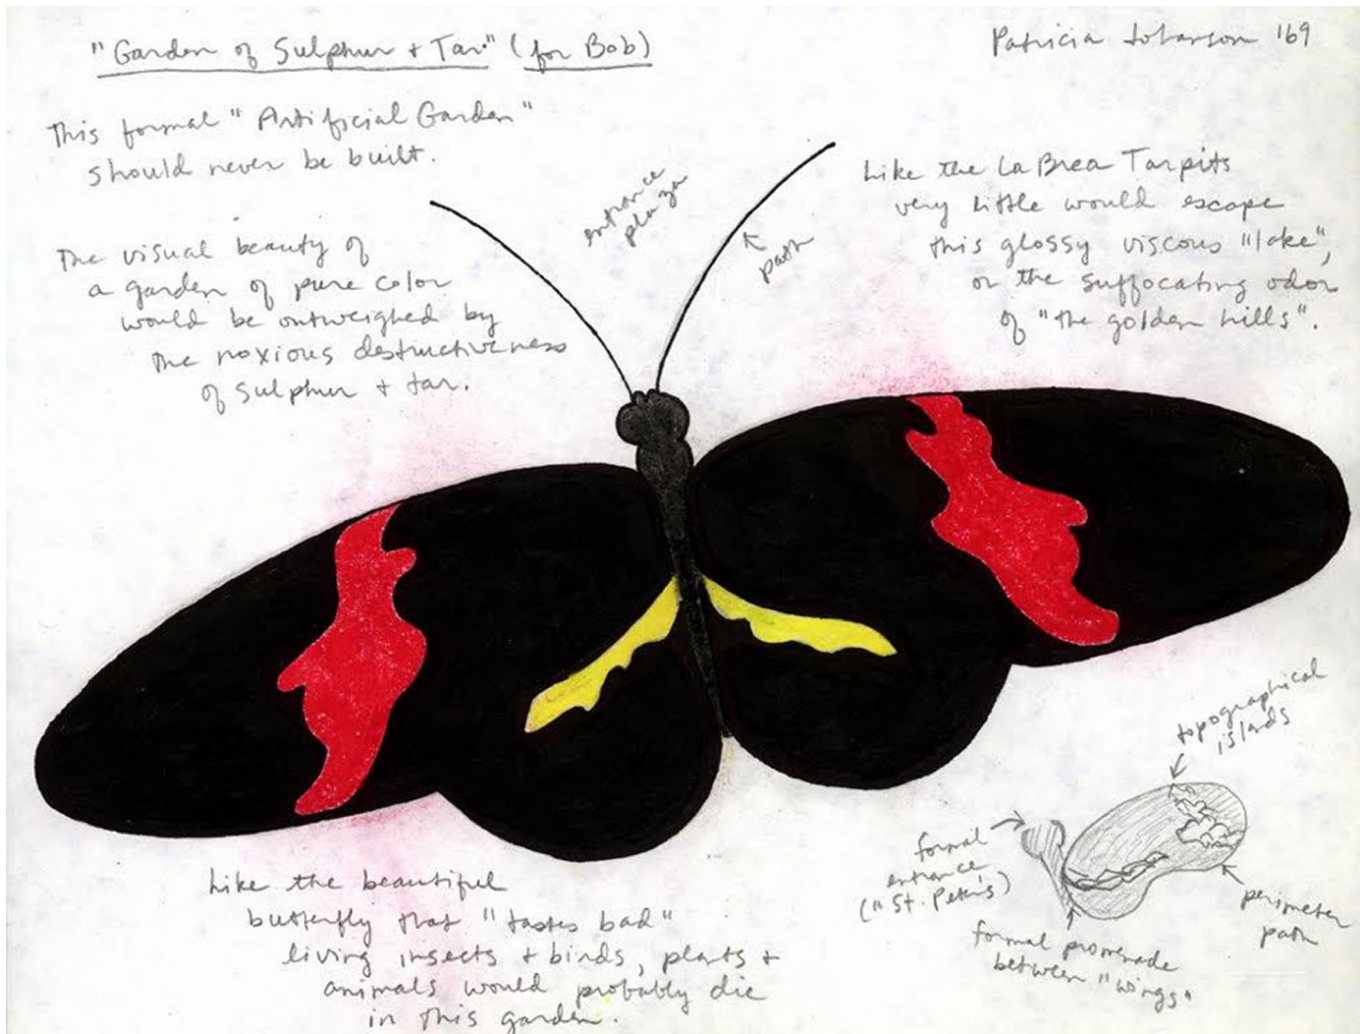 "Garden of Sulphur + Tar" (for Bob)
Patricia Johanson '69
This formal "Artificial Garden"
should never be built.
The visual beauty of
a garden of pure color
would be outweighed by
the noxious destructiveness
of sulphur + tar.
entrance
plaza
path
Like the La Brea Tarpits
very little would escape
this glossy viscous "lake",
or the suffocating odor
of "the golden hills".
Like the beautiful
butterfly that "tastes bad"
living insects + birds, plants +
animals would probably die
in this garden.
topographical
islands
formal
entrance
("St. Peter's)
formal promenade
between "wings"
perimeter
path